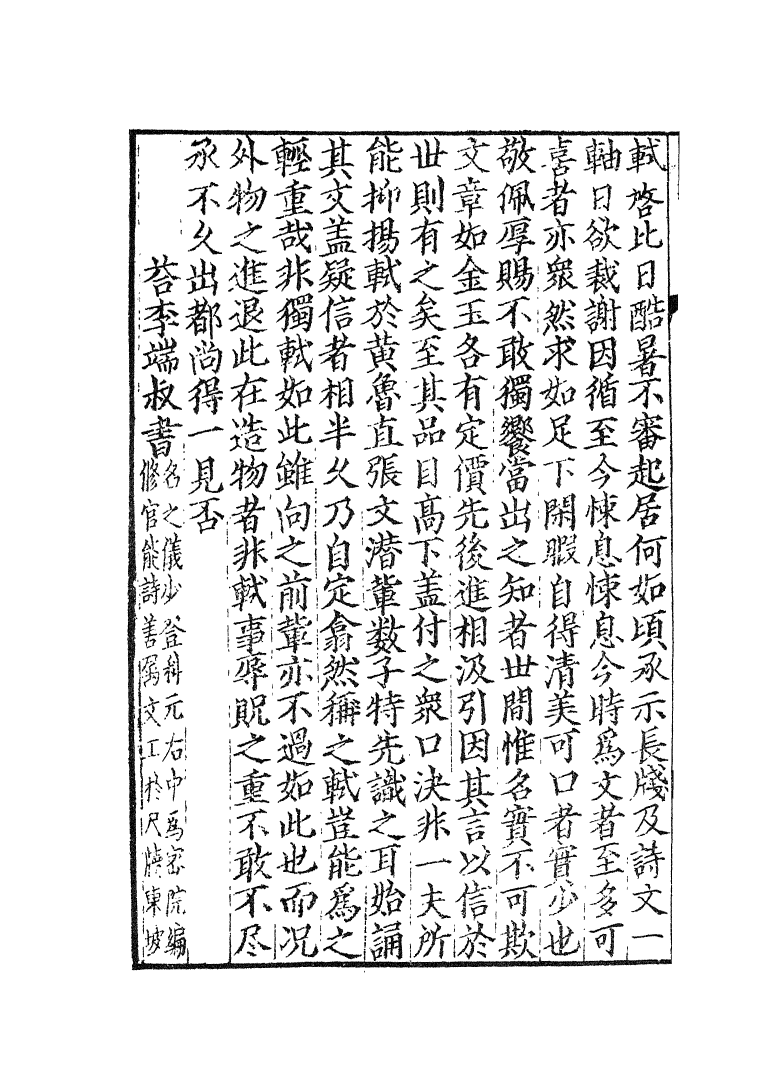 軾啓比日酷暑不審起居何如頃承示長牋及詩文一
軸日欲裁謝因循至今悚息悚息今時爲文者至多可
喜者亦衆然求如足下閑暇自得清美可口者實少也
敬佩厚賜不敢獨饗當出之知者世間惟名實不可欺
文章如金玉各有定價先後進相汲引因其言以信於
世則有之矣至其品目高下盖付之衆口決非一夫所
能抑揚軾於黄魯直張文潜輩数子特先識之耳始誦
其文盖疑信者相半久乃自定翕然稱之軾豈能爲之
輕重哉非獨軾如此雖向之前輩亦不過如此也而况
外物之進退此在造物者非軾事辱貺之重不敢不尽
承不久出都尚得一見否
荅李端叔書
名之儀少登科元右中爲密院編
修官能詩善属文工於尺牘東坡